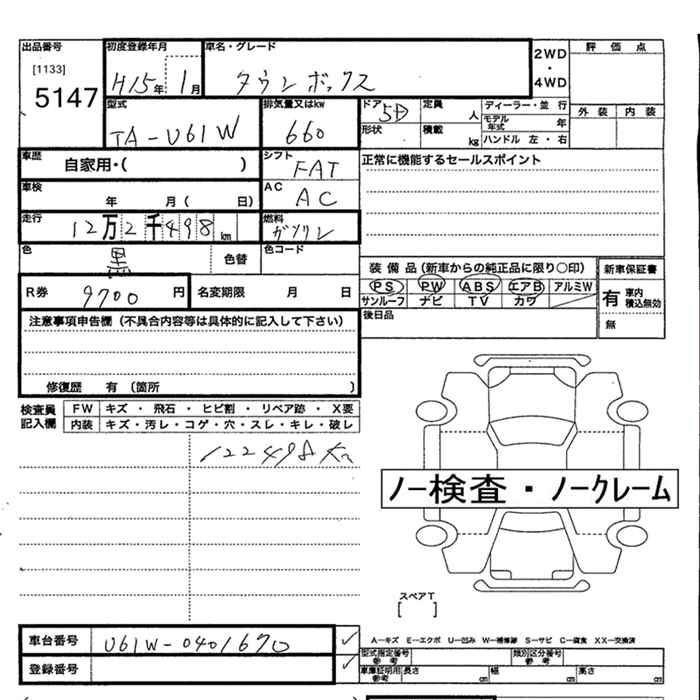 出品番号 初度登録年月 車名・グレード 2WD 評価点
[1133] ・
5147 H15年 1月 タウンボックス 4WD
型式 排気量又はkw ドア 5D 定員 人 ディーラー・並 行 外装 内装
TA-U61W 660 形状 積載 kg モデル年式 年
ハンドル 左・右
車歴 自家用・( ) シフト FAT 正常に機能するセールスポイント
車検 年 月 ( 日) AC AC
走行 12万2千498km 燃料 ガソリン
色 黒 色替 色コード
装備品(新車からの純正品に限り○印) 新車保証書
R券 9700円 名変期限 月 日 PS PW ABS エアB アルミW 有 車内積込無効
サンルーフ ナビ TV カワ
注意事項申告欄(不具合内容等は具体的に記入して下さい) 後日品 無
修復歴 有(箇所 )
検査員記入欄 FW キズ・飛石・ヒビ割・リペア跡・X要
内装 キズ・汚レ・コゲ・穴・スレ・キレ・破レ
122498
ノー検査・ノークレーム
スペアT
[ ]
車台番号 U61W-0401670 A―キズ E―エクボ U―凹み W―補修跡 S―サビ C―腐食 XX―交換済
型式指定番号 参考 類別区分番号 参考
登録番号 車庫証明用 参考 長さ cm 幅 cm 高さ cm